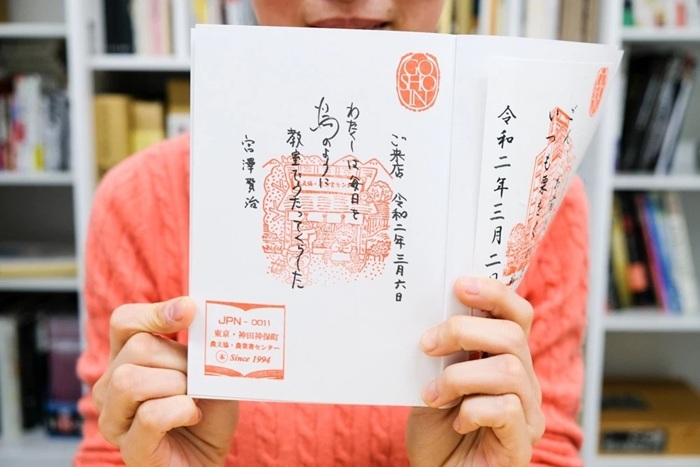 GO
SHO
IN
ご来店 令和二年三月六日
わたくしは毎日を
鳥のように
教室でうたってくらした
宮澤賢治
JPN - 0011
東京・神田神保町
農文協・農業書センター
本 Since 1994
令和二年三月二